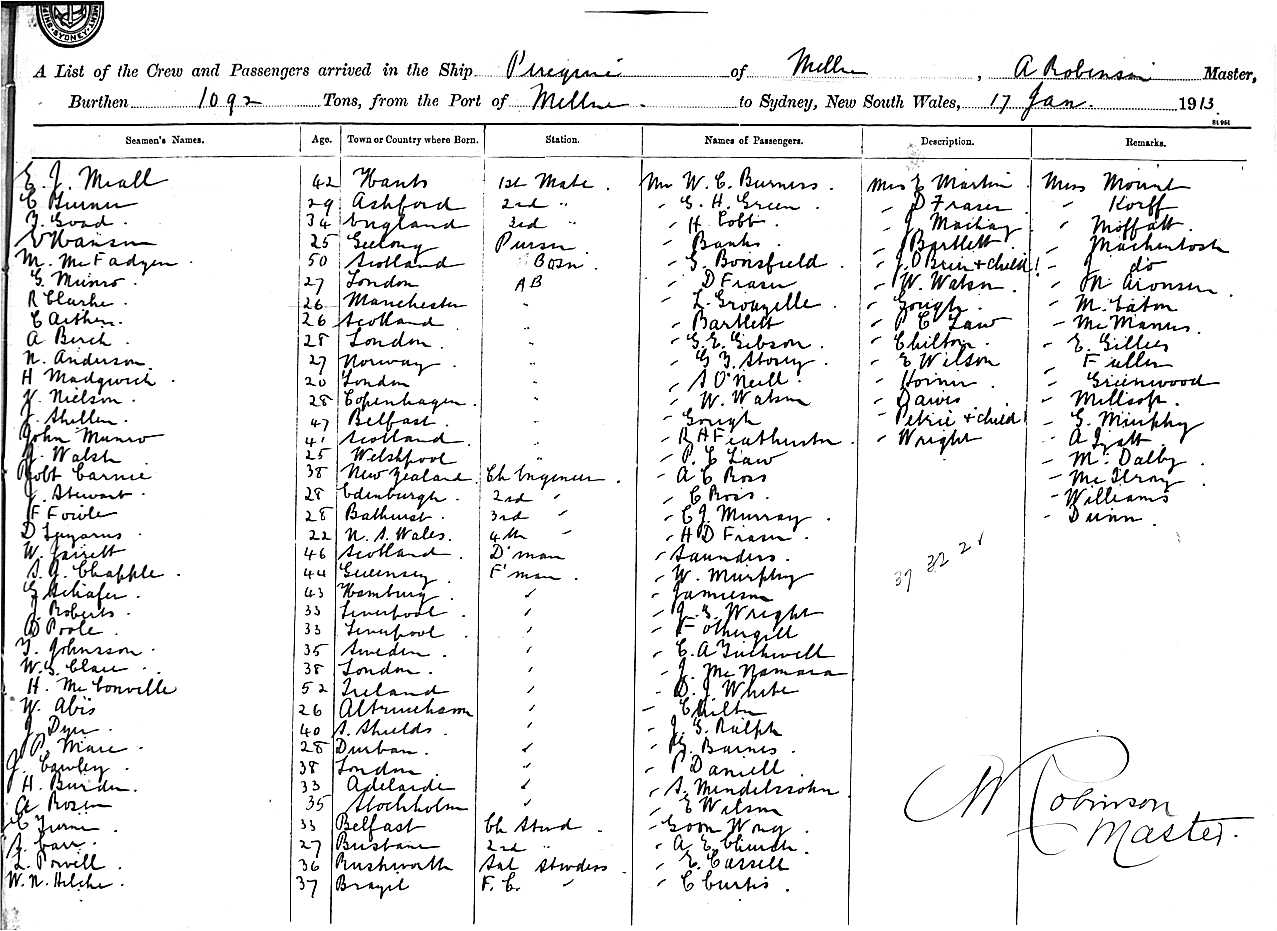 SYDNEY
A List of the Crew and Passengers arrived in the Ship Peregrine of Mellne, A Robinson Master,
Burthen 1092 Tons, from the Port of Mellne. to Sydney, New South Wales, 17 Jan. 1913.
Seamen's Names. Age. Town or Country where Born. Station. Names of Passengers. Description. Remarks.
E. J. Meall 42 Hants 1st Mate. Mr W. C. Burners. Mrs E Martin Miss Mount
C Turner 29 Ashford 2nd " " G. H. Green. " D Fraser " Korff
Goad 34 England 3rd " " H Cobb " J Mackay " Moffatt
Hanson 25 Geelong Purser " Banks " Bartlett " Mackintosh
M. McFadyen 50 Scotland Bosn " G Bonsfield " J. O'Brien + child! " J do
G. Munro 27 London AB " D Fraser " W. Watson " M Aronsen
R Clarke. 26 Manchester " " L. Grouzelle " Gough. " M. Eaton
C Aitken. 26 Scotland " " Bartlett " P C Law " McManus.
A Birch 28 London. " " G. E. Gibson. " Chilton. " E. Gillies
N. Anderson. 27 Norway. " " G Storey " E Wilson " Fuller
H Madgwick 20 London " " S O'Neill. " " Greenwood
Nielson. 28 Copenhagen. " " W. Watson " Davis " Millsop.
J. Shellen. 47 Belfast. " " Gough " Petrie + child! " G. Murphy
John Munro 41 Scotland. " " R H Featherston. " Wright " A
Walsh 25 Welshpool " " P. C Law " M. Dalby.
Robt Carnie 38 New Zealand. Ch Engineer " A C Ross " McIlroy
J. Stewart. 28 Edinburgh. 2nd " " C Ross. " Williams
F Fowle 28 Bathurst. 3rd " " C J. Murray " Dunn.
D Lazarus 22 N. S. Wales. 4th " " H D Fraser
W. Jarrett 46 Scotland. D'man " Saunders. 37 32 21
S. J. Chapple. 44 Guernsey. F'man. " W. Murphy
Schafer. 43 Hamburg. " " Jamieson
Roberts. 33 Liverpool. " " J. G. Wright
Poole. 33 Liverpool. " " Fothergill
Johnsson. 35 Sweden. " " C. A Tuckwell
W. G. Clare. 38 London. " " J. McNamara
H. McConville 52 Ireland " " D. J. White
W. Abis 26 Altrincham " " Chilton
J Dyer 40 S. Shields. " " J. G. Ralph
P. Mare. 28 Durban. " " Barnes.
J. Cawley. 38 London. " " P Daniell.
H. Burden. 33 Adelaide " " S. Mendelssohn
A Rosen 35 Stockholm " " E Wilson
C Turner 33 Belfast Ch Stwd. " Goon Wong
Carr. 27 Brisbane 2nd " " A E. Church.
L. Powell. 36 Rushworth Sal Stwdess " E. Cassell
W. N. 37 Brazil F. C. " " C Curtis.
W Robinson
Master.